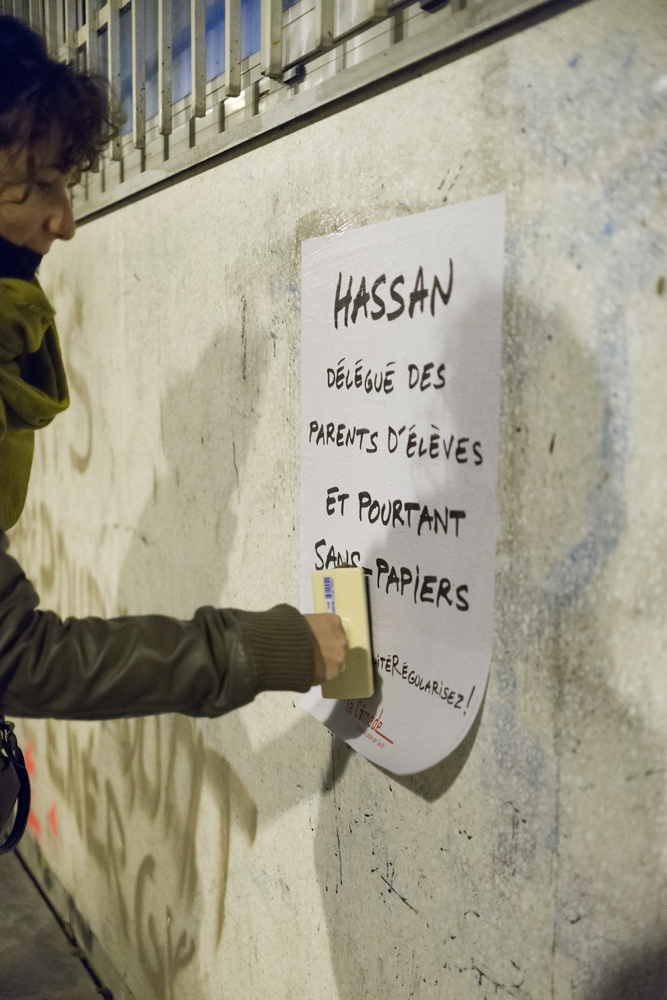 HASSAN
DÉLÉGUÉ DES
PARENTS D'ÉLÈVES
ET POURTANT
SANS-PAPIERS
RÉGULARISEZ!
la Cimade